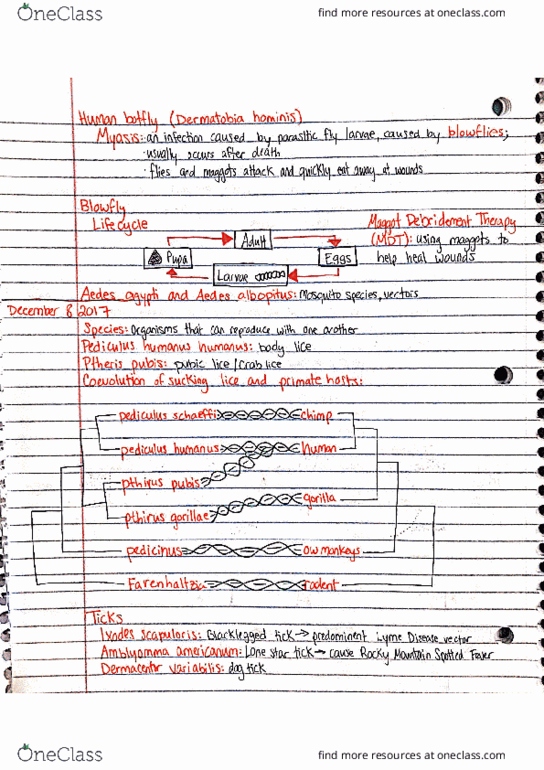 OneClass
find more resources at oneclass.com
Human botfly (Dermatobia hominis)
Myasis: an infection caused by parasitic fly larvae, caused by blowflies;
· usually occurs after death
· flies and maggots attack and quickly eat away at wounds
Blowfly
Lifecycle
Adult
Pupa
Eggs
Larvae
Maggot Debridement Therapy
(MDT): using maggots to
help heal wounds
Aedes agypti and Aedes albopitus: Mosquito species, vectors
December 8 2017
Species: Organisms that can reproduce with one another
Pediculus humanus humanus: body lice
Ptheris pubis: pubic lice/crab lice
Coevolution of sucking lice and primate hosts:
pediculus schaeffi chimp
pediculus humanus human
pthirus pubis
pthirus gorillae gorilla
pedicinus ow monkeys
Farenhaltzia rodent
Ticks
Ixodes scapularis: Blacklegged tick → predominent Lyme Disease vector
Amblyomma americanum: Lone star tick → cause Rocky Mountain Spotted Fever
Dermacentor variabilis: dog tick
OneClass
find more resources at oneclass.com